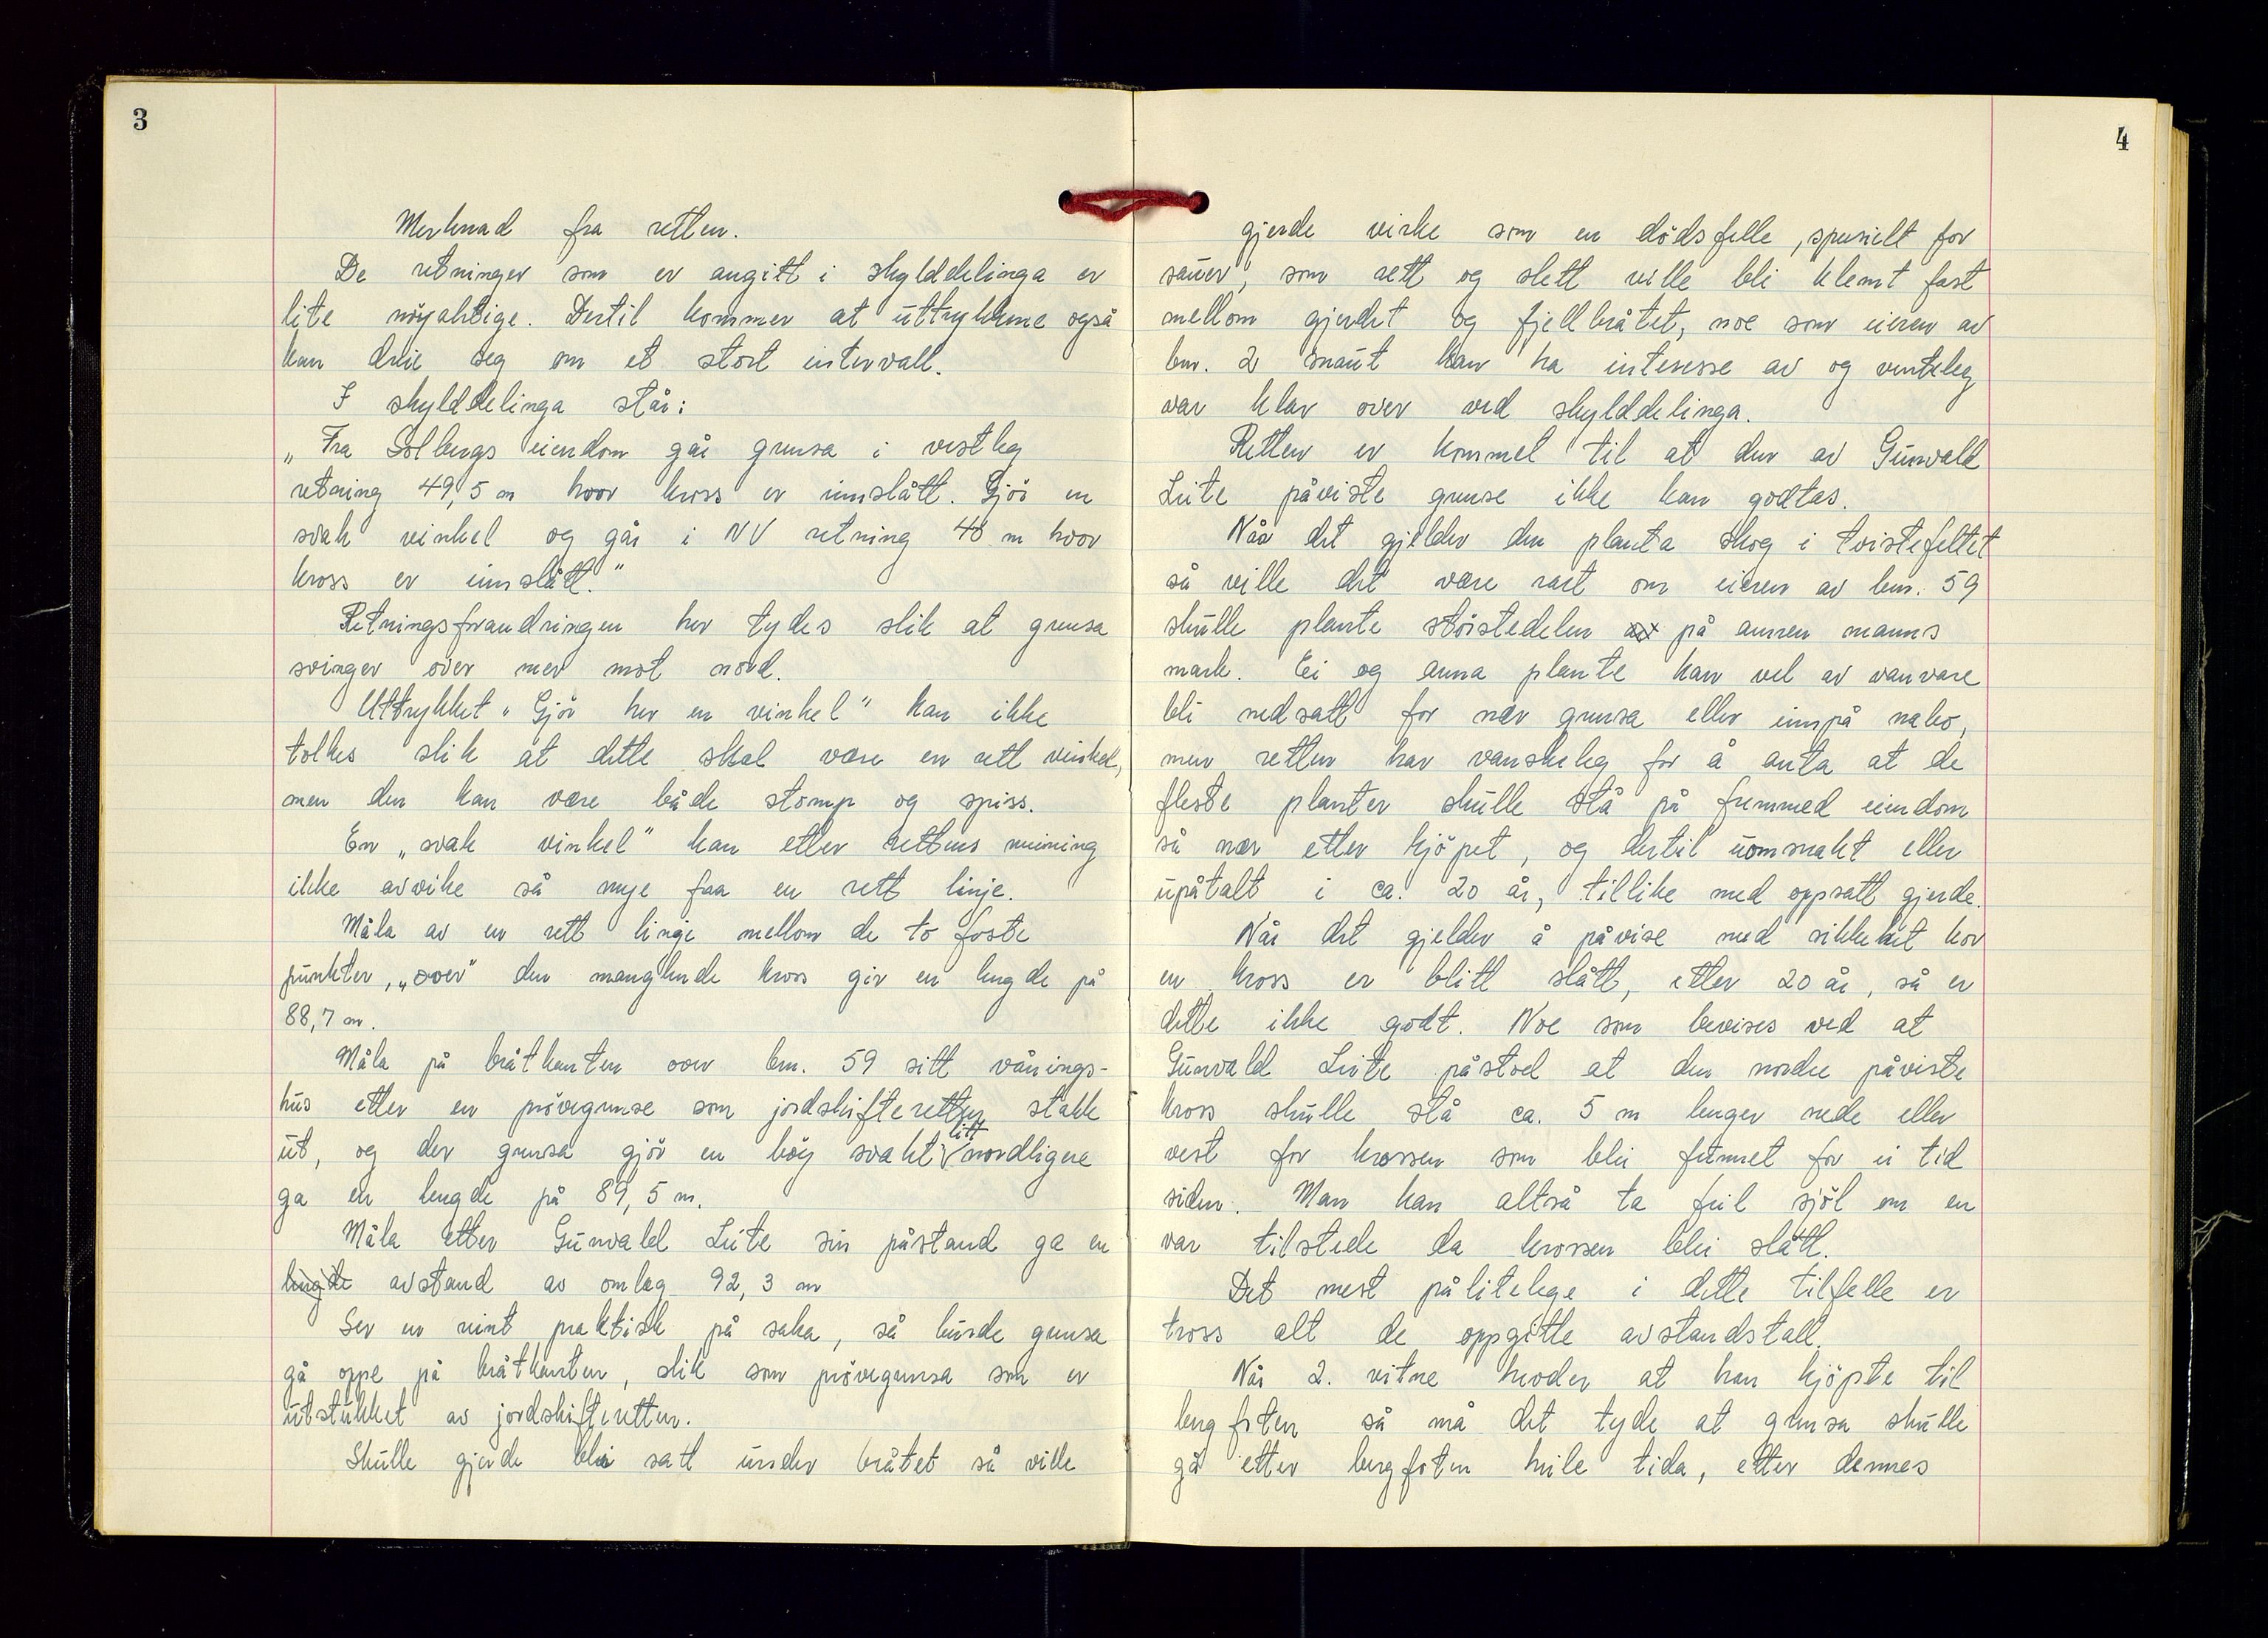 3
Merknad fra retten.
De retninger som er angitt i skylddelinga er
lite nöyaktige. Dertil kommer at uttrykkene også
kan dreie seg om et stort intervall.
I skylddelinga står:
„Fra Solbergs eiendom går grensa i vestleg
retning 49,5 m hvor kross er innslått. Gjör en
svak vinkel og går i NV retning 48 m hvor
kross er innslått."
Retningsforandringen her tydes slik at grensa
svinger over mer mot nord.
Uttrykket "Gjör her en vinkel" kan ikke
tolkes slik at dette skal være en rett vinkel,
men den kan være både stomp og spiss.
En „svak vinkel" kan etter rettens meining
ikke avvike så mye fra en rett linje.
Måla av en rett linje mellom de to faste
punkter, „over" den manglende kross gir en lengde på
88,7 m.
Måla på bråtkanten over bnr. 59 sitt vånings-
hus etter en prövegrense som jordskifteretten stakk
ut, og der grensa gjör en böy svakt litt nordligere
ga en lengde på 89,5 m.
Måla etter Gunvald Liite sin påstand ga en
lengde avstand av omlag 92,3 m
Ser en reint praktisk på saka, så burde grensa
gå oppe på bråtkanten, slik som prövegrensa som er
utstukket av jordskifteretten.
Skulle gjerde bli satt under bråtet så ville
4
gjerde virke som en dödsfelle, spesielt for
sauer, som rett og slett ville bli klemt fast
mellom gjerdet og fjellbråtet, noe som eieren av
bnr. 2 snaut kan ha interesse av og venteleg
var klar over ved skylddelinga.
Retten er kommet til at den av Gunvald
Liite påviste grense ikke kan godtas.
Når det gjelder den planta skog i tvistefeltet
så ville det være rart om eieren av bnr. 59
skulle plante störstedelen av på annen manns
mark. Ei og anna plante kan vel av vanvare
bli nedsatt for nær grensa eller innpå nabo,
men retten har vanskeleg for å anta at de
fleste planter skulle stå på fremmed eiendom
så nær etter kjöpet, og dertil uomsnakt eller
upåtalt i ca. 20 år, tillike med oppsatt gjerde.
Når det gjelder å påvise med sikkehet kor
en kross er blitt slått, etter 20 år, så er
dette ikke godt. Noe som bevises ved at
Gunvald Liite påstod at den nordre påviste
kross skulle stå ca. 5 m lenger nede eller
vest for krossen som blei funnet for ei tid
siden. Man kan altså ta feil sjöl om en
var tilstede da krossen blei slått.
Det mest pålitelege i dette tilfelle er
tross alt de oppgitte avstandstall.
Når 2. vitne hevder at han kjöpte til
bergfoten så må det tyde at grensa skulle
gå etter bergfoten heile tida, etter dennes